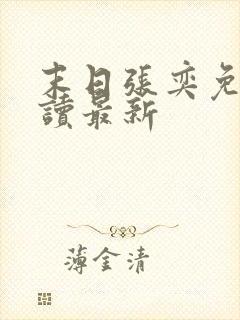 末日張奕免
讀最新
薄金清